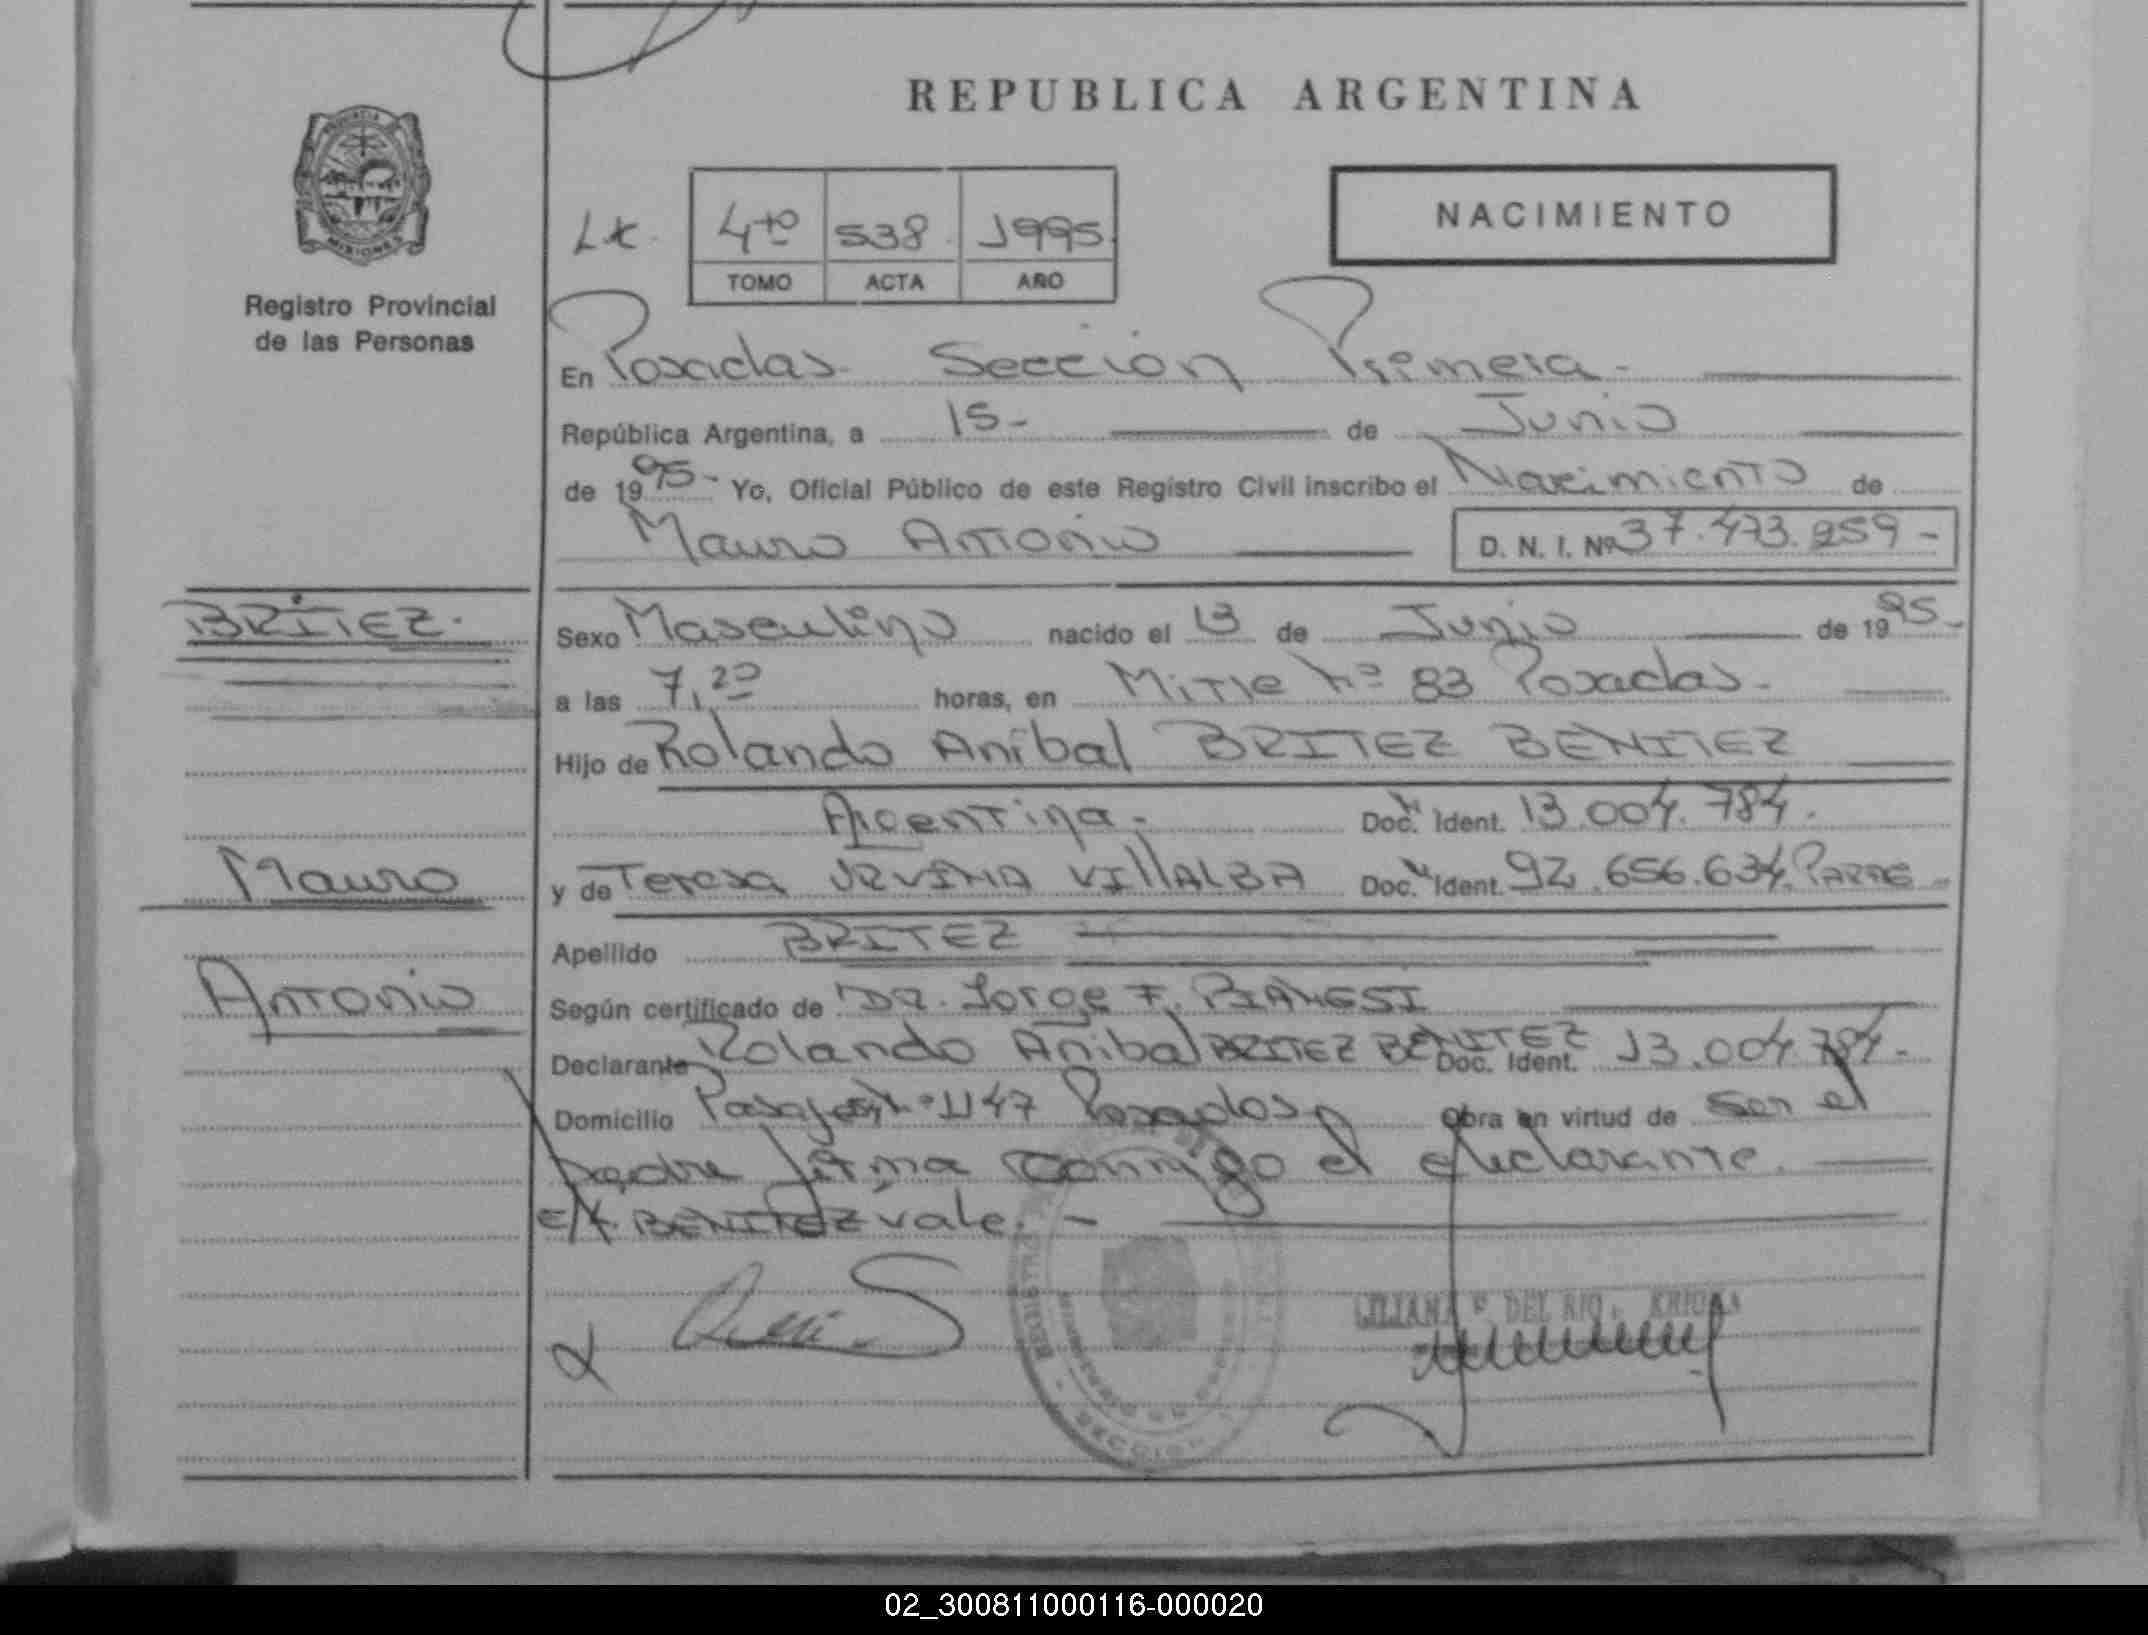 REPUBLICA ARGENTINA
PROVINCIA
MISIONES
Registro Provincial
de las Personas
4to 538 1995
TOMO ACTA AÑO
NACIMIENTO
En Posadas Sección Primera.-
República Argentina, a 15- de Junio
de 1995- Yo, Oficial Público de este Registro Civil inscribo el Nacimiento de
Mauro Antonio D. N. I. Nº 37.473.959-
BRITEZ.
Sexo Masculino nacido el 13 de Junio de 1995.-
a las 7,20 horas, en Mitre Nº 83 Posadas.-
Hijo de Rolando Anibal BRITEZ BENITEZ
Argentina. Doc. Ident. 13.004.784.
Mauro
y de Teresa VILLALBA Doc. Ident. 92.656.634.
Apellido BRITEZ
Antonio
Según certificado de DR. Jorge F. PIANESI
Declarante Rolando Anibal BRITEZ BENITEZ Doc. Ident. 13.004.784.-
Domicilio Pasaje Nº 1147 Posadas Obra en virtud de ser el
padre firma conmigo el declarante.
E/L. BENITEZ vale.-
LILIANA DEL RIO
SECCION
02_300811000116-000020